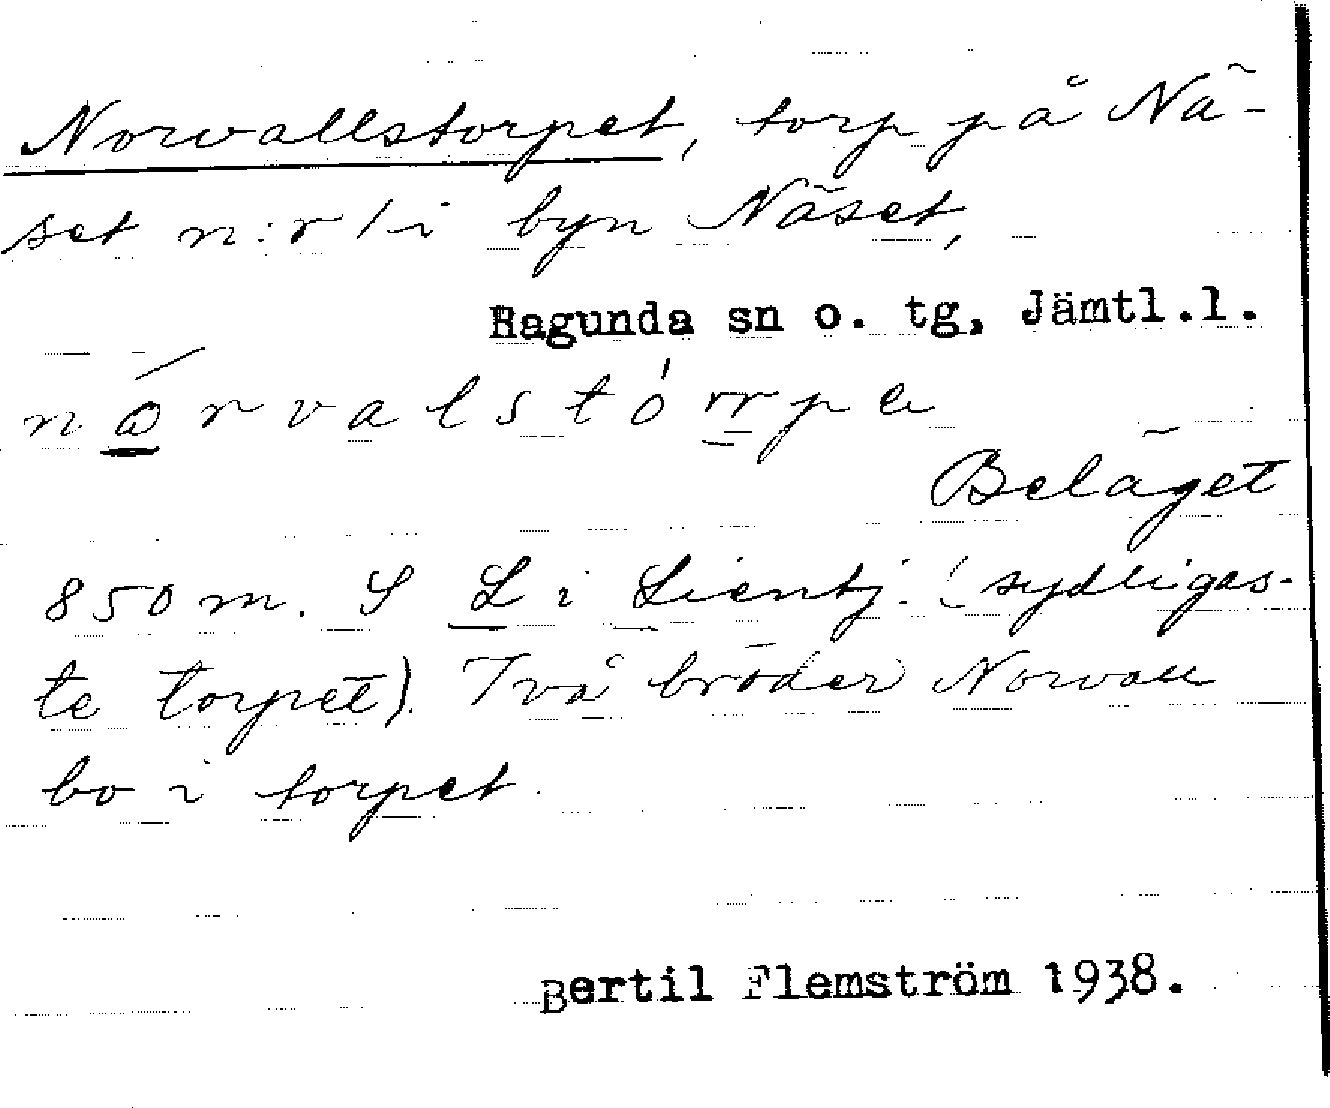 Norvallstorpet, torp på Nä-
set n:r 1 i byn Näset,
Ragunda sn o. tg, Jämtl.l.
nó̲rvalstórrpe
Beläget
850 m. S L i Lientj. (sydligas-
te torpet). Två bröder Norvall
bo i torpet.
Bertil Flemström 1938.